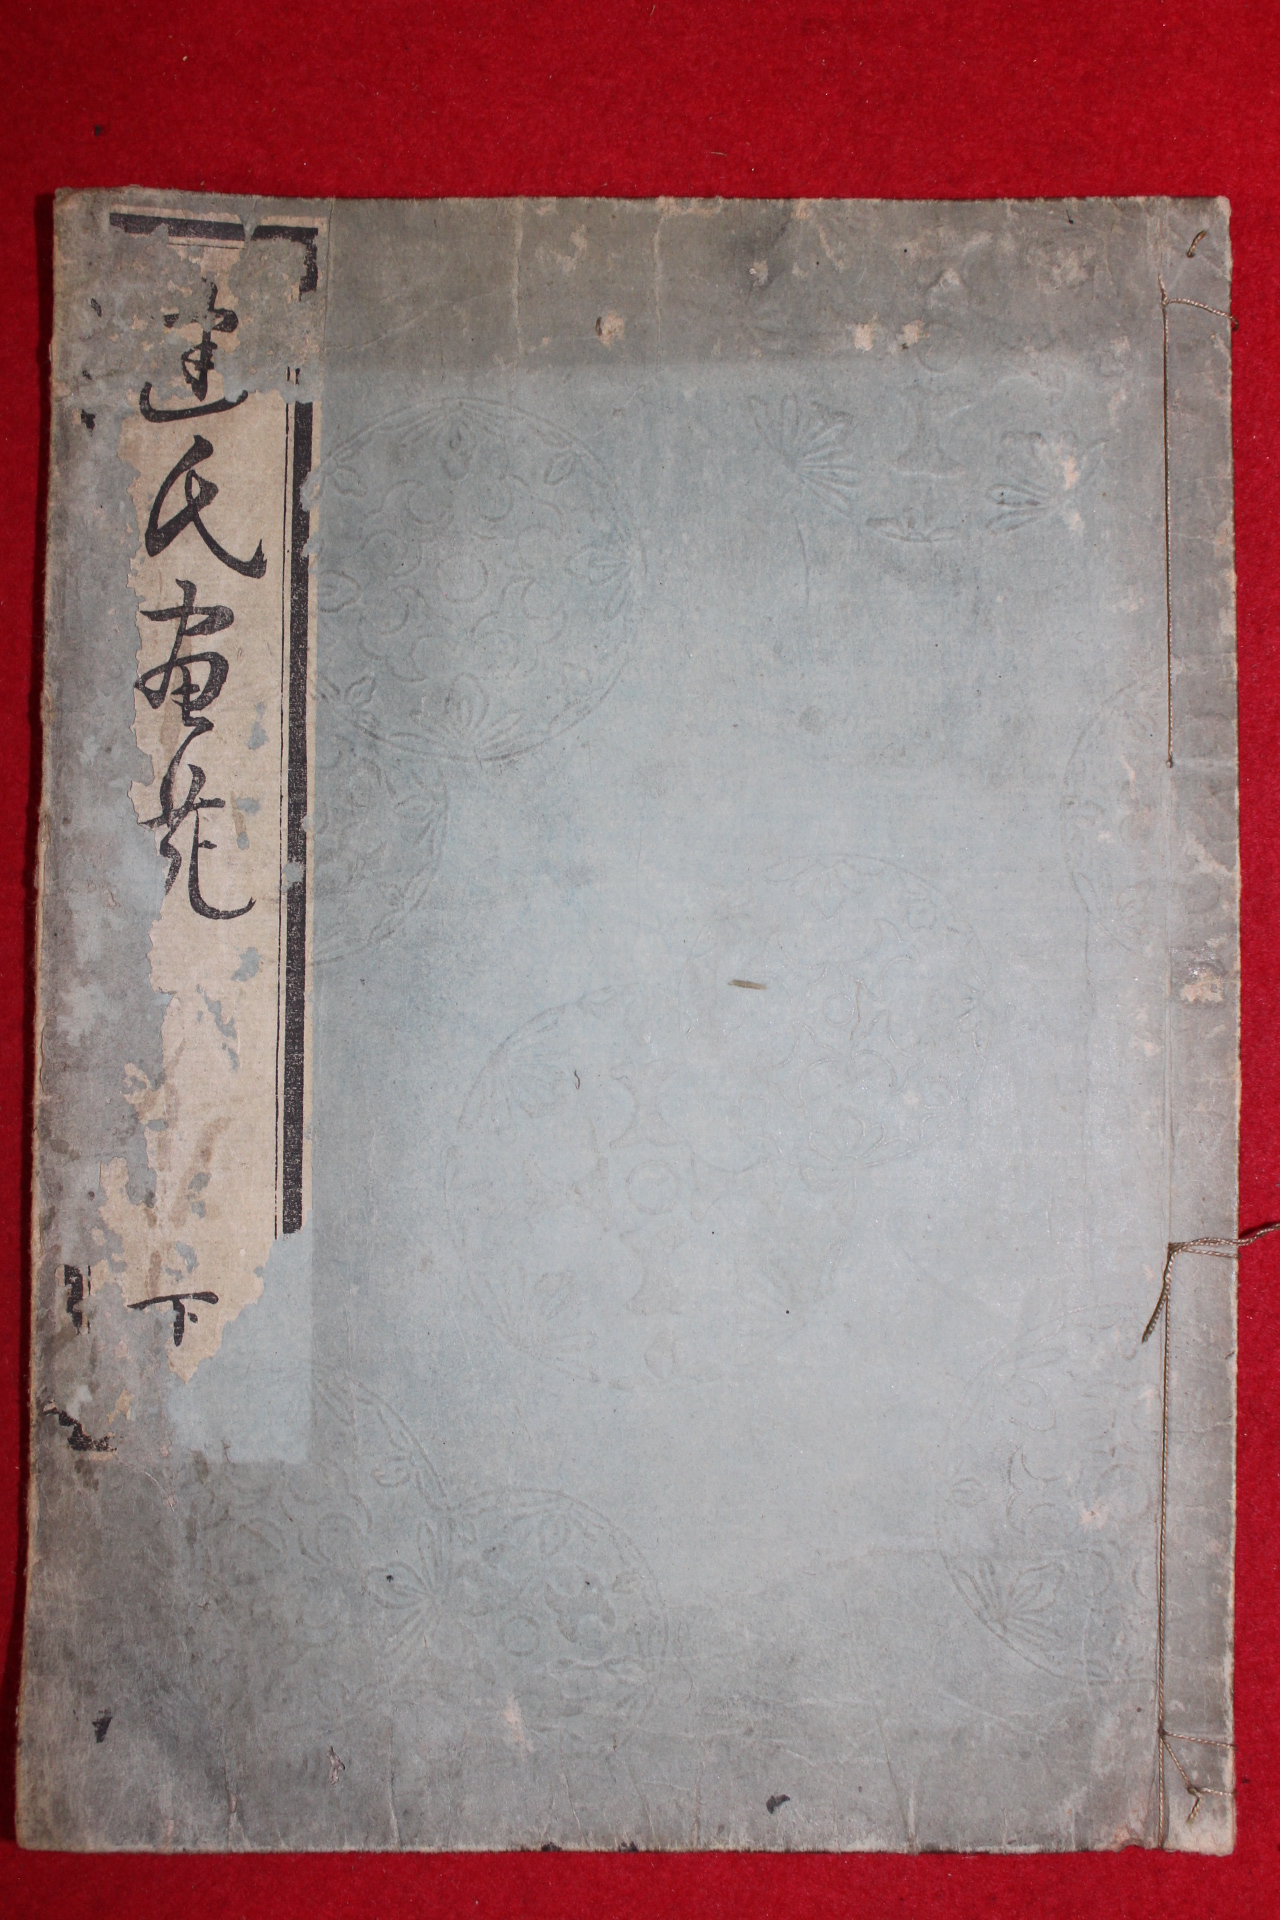 建氏畫苑 下